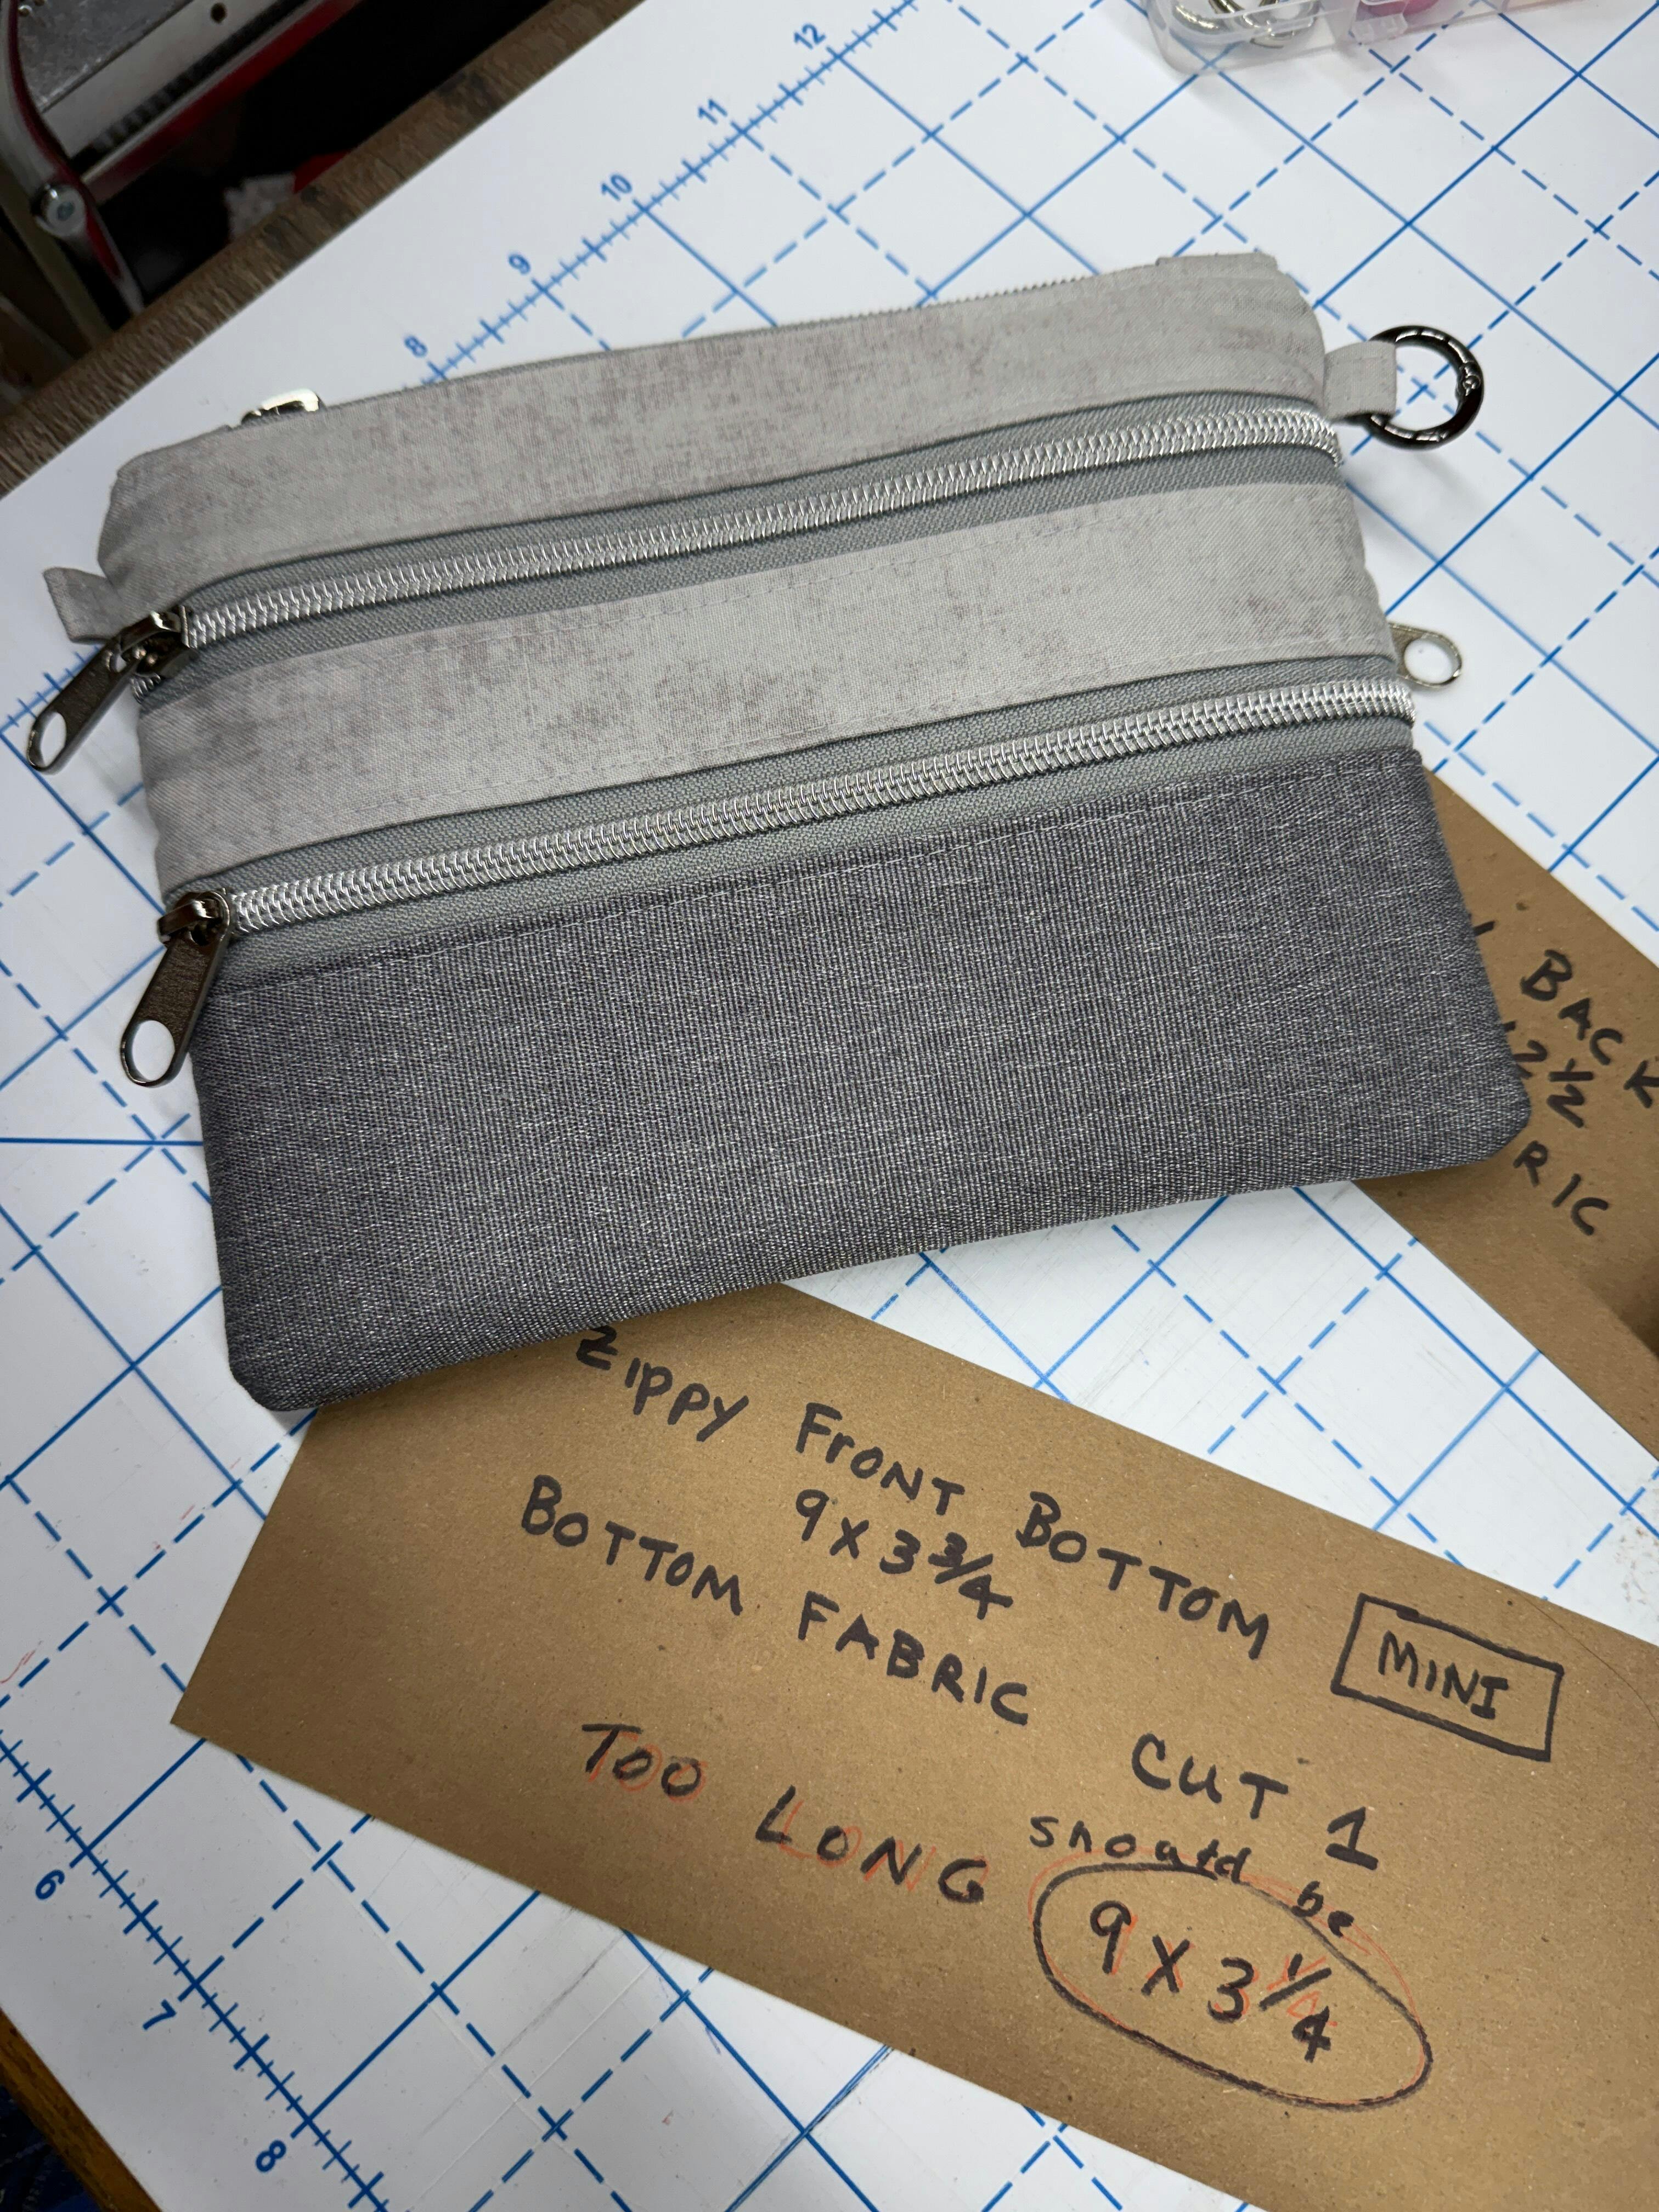 12
11
10
9
8
BACK
2 1/2
RIC
Zippy Front Bottom
9 x 3 3/4
Bottom Fabric
MINI
CUT 1
Too Long
should be
9 x 3 1/4
6
7
8